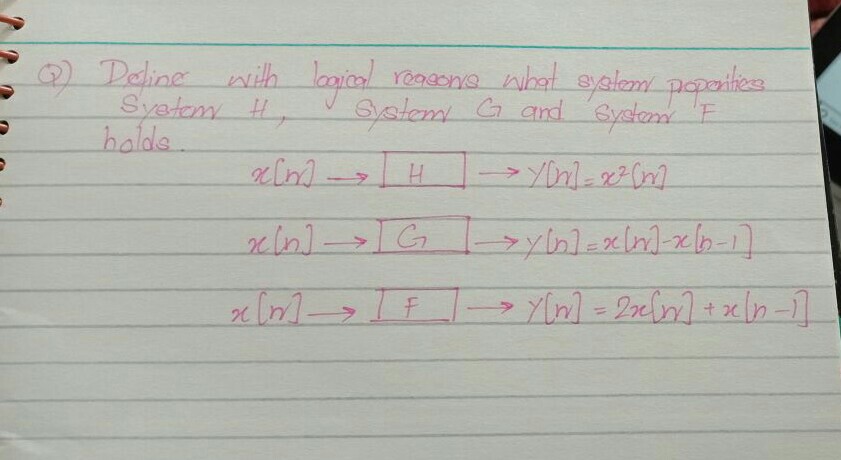 Q) Define with logical reasons what system poperities
System H, System G and System F
holds.
x[n] → H → y[n] = x²[n]
x[n] → G → y[n] = x[n]-x[n-1]
x[n] → F → y[n] = 2x[n] + x[n-1]